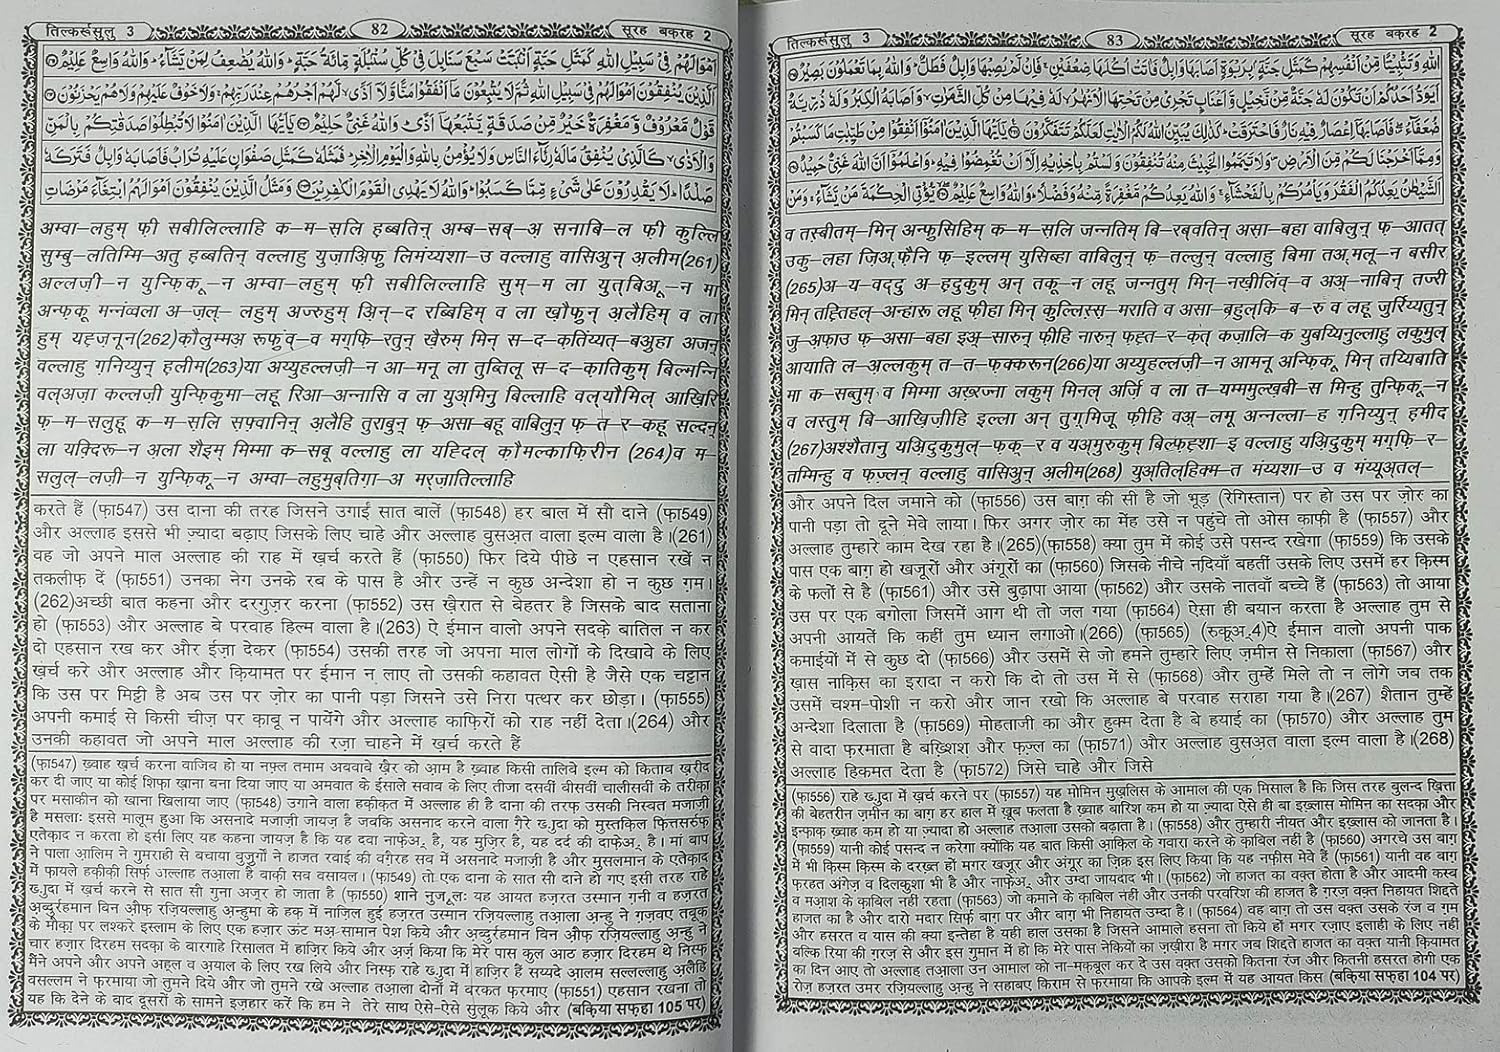 तिल्कर्रूसुलु 3
82
सूरह बक़रह 2
اَمْوَالَهُمْ فِیْ سَبِیْلِ اللّٰهِ كَمَثَلِ حَبَّةٍ اَنْۢبَتَتْ سَبْعَ سَنَابِلَ فِیْ كُلِّ سُنْۢبُلَةٍ مِّائَةُ حَبَّةٍ ؕ وَاللّٰهُ یُضٰعِفُ لِمَنْ یَّشَآءُ ؕ وَاللّٰهُ وَاسِعٌ عَلِیْمٌ
اَلَّذِیْنَ یُنْفِقُوْنَ اَمْوَالَهُمْ فِیْ سَبِیْلِ اللّٰهِ ثُمَّ لَا یُتْبِعُوْنَ مَاۤ اَنْفَقُوْا مَنًّا وَّلَاۤ اَذًی ۙ لَّهُمْ اَجْرُهُمْ عِنْدَ رَبِّهِمْ ۚ وَلَا خَوْفٌ عَلَیْهِمْ وَلَا هُمْ یَحْزَنُوْنَ
قَوْلٌ مَّعْرُوْفٌ وَّمَغْفِرَةٌ خَیْرٌ مِّنْ صَدَقَةٍ یَّتْبَعُهَاۤ اَذًی ؕ وَاللّٰهُ غَنِیٌّ حَلِیْمٌ یٰۤاَیُّهَا الَّذِیْنَ اٰمَنُوْا لَا تُبْطِلُوْا صَدَقٰتِكُمْ بِالْمَنِّ
وَالْاَذٰی ۙ كَالَّذِیْ یُنْفِقُ مَالَهٗ رِئَآءَ النَّاسِ وَلَا یُؤْمِنُ بِاللّٰهِ وَالْیَوْمِ الْاٰخِرِ ؕ فَمَثَلُهٗ كَمَثَلِ صَفْوَانٍ عَلَیْهِ تُرَابٌ فَاَصَابَهٗ وَابِلٌ فَتَرَكَهٗ
صَلْدًا ؕ لَا یَقْدِرُوْنَ عَلٰی شَیْءٍ مِّمَّا كَسَبُوْا ؕ وَاللّٰهُ لَا یَهْدِی الْقَوْمَ الْكٰفِرِیْنَ وَمَثَلُ الَّذِیْنَ یُنْفِقُوْنَ اَمْوَالَهُمُ ابْتِغَآءَ مَرْضَاتِ
अम्वा–लहुम् फ़ी सबीलिल्लाहि क–म–सलि हब्बतिन् अम्ब–सब्–अ़ सनाबि–ल फ़ी कुल्लि
सुम्बु–लतिम्मि–अतु हब्बतिन् वल्लाहु युज़ाअ़िफ़ु लिमंय्यशा–उ वल्लाहु वासिअुन् अ़लीम(261)
अल्लज़ी–न युन्फ़िक़ू–न अम्वा–लहुम् फ़ी सबीलिल्लाहि सुम्–म ला युत्बिअू–न मा
अन्फ़क़ू मन्नंव्वला अ–ज़ल्– लहुम् अज्रुहुम् अ़िन्–द रब्बिहिम् व ला ख़ौफ़ुन् अ़लैहिम् व ला
हुम् यह्ज़नून(262)क़ौलुम्मअ़ रूफ़ुंव्–व मग़्फ़ि–रतुन् ख़ैरुम् मिन् स–द–क़तिंय्यत्–बअुहा अज़न्
वल्लाहु ग़निय्युन् हलीम(263)या अय्युहल्लज़ी–न आ–मनू ला तुब्तिलू स–द–क़ातिकुम् बिल्मन्नि
वल्अज़ा कल्लज़ी युन्फ़िक़ुमा–लहू रिआ–अन्नासि व ला युअ्मिनु बिल्लाहि वल्यौमिल् आख़िरि
फ़–म–सलुहू क–म–सलि सफ़्वानिन् अ़लैहि तुराबुन् फ़–असा–बहू वाबिलुन् फ़–त–र–कहू सल्दन्
ला यक़्दिरू–न अ़ला शैइम् मिम्मा क–सबू वल्लाहु ला यह्दिल् क़ौमल्काफ़िरीन (264)व म–
सलुल्–लज़ी–न युन्फ़िक़ू–न अम्वा–लहुमुब्तिग़ा–अ मर्ज़ातिल्लाहि
करते हैं (फ़ा547) उस दाना की तरह जिसने उगाईं सात बालें (फ़ा548) हर बाल में सौ दाने (फ़ा549)
और अल्लाह इससे भी ज़्यादा बढ़ाए जिसके लिए चाहे और अल्लाह वुसअ़त वाला इल्म वाला है।(261)
वह जो अपने माल अल्लाह की राह में ख़र्च करते हैं (फ़ा550) फिर दिये पीछे न एहसान रखें न
तकलीफ़ दें (फ़ा551) उनका नेग उनके रब के पास है और उन्हें न कुछ अन्देशा हो न कुछ ग़म।
(262)अच्छी बात कहना और दरगुज़र करना (फ़ा552) उस ख़ैरात से बेहतर है जिसके बाद सताना
हो (फ़ा553) और अल्लाह बे परवाह हिल्म वाला है।(263) ऐ ईमान वालो अपने सदक़े बातिल न कर
दो एहसान रख कर और ईज़ा देकर (फ़ा554) उसकी तरह जो अपना माल लोगों के दिखावे के लिए
ख़र्च करे और अल्लाह और क़ियामत पर ईमान न लाए तो उसकी कहावत ऐसी है जैसे एक चट्टान
कि उस पर मिट्टी है अब उस पर ज़ोर का पानी पड़ा जिसने उसे निरा पत्थर कर छोड़ा। (फ़ा555)
अपनी कमाई से किसी चीज़ पर क़ाबू न पायेंगे और अल्लाह काफ़िरों को राह नहीं देता।(264) और
उनकी कहावत जो अपने माल अल्लाह की रज़ा चाहने में ख़र्च करते हैं
(फ़ा547) ख़्वाह ख़र्च करना वाजिब हो या नफ़्ल तमाम अबवाबे ख़ैर को आ़म है ख़्वाह किसी तालिबे इल्म को किताब ख़रीद
कर दी जाए या कोई शिफ़ा ख़ाना बना दिया जाए या अमवात के ईसाले सवाब के लिए तीजा दसवीं बीसवीं चालीसवीं के तरीक़ा
पर मसाकीन को खाना खिलाया जाए (फ़ा548) उगाने वाला हक़ीक़त में अल्लाह ही है दाना की तरफ़ उसकी निस्बत मजाज़ी
है मसलाः इससे मालूम हुआ कि असनादे मजाज़ी जायज़ है जबकि असनाद करने वाला ग़ैरे ख़ुदा को मुस्तक़िल फ़ित्तसर्रुफ़
एतेक़ाद न करता हो इसी लिए यह कहना जायज़ है कि यह दवा नाफ़ेअ़ है, यह मुज़िर है, यह दर्द की दाफ़ेअ़ है। मां बाप
ने पाला आ़लिम ने गुमराही से बचाया बुज़ुर्गों ने हाजत रवाई की वग़ैरह सब में असनादे मजाज़ी है और मुसलमान के एतेक़ाद
में फ़ायले हक़ीक़ी सिर्फ़ अल्लाह तआ़ला है बाक़ी सब वसायल। (फ़ा549) तो एक दाना के सात सौ दाने हो गए इसी तरह राहे
ख़ुदा में ख़र्च करने से सात सौ गुना अज्र हो जाता है (फ़ा550) शाने नुज़ूलः यह आयत हज़रत उस्मान ग़नी व हज़रत
अ़ब्दुर्रहमान बिन औ़फ़ रज़ियल्लाहु अ़न्हुमा के हक़ में नाज़िल हुई हज़रत उस्मान रज़ियल्लाहु तआ़ला अ़न्हु ने ग़ज़वए तबूक
के मौक़ा पर लश्करे इस्लाम के लिए एक हज़ार ऊंट मअ़ सामान पेश किये और अ़ब्दुर्रहमान बिन औ़फ़ रज़ियल्लाहु अ़न्हु ने
चार हज़ार दिरहम सदक़ा के बारगाहे रिसालत में हाज़िर किये और अ़र्ज़ किया कि मेरे पास कुल आठ हज़ार दिरहम थे निस्फ़
मैंने अपने और अपने अहल व अ़याल के लिए रख लिये और निस्फ़ राहे ख़ुदा में हाज़िर हैं सय्यदे आ़लम सल्लल्लाहु अ़लैहि
वसल्लम ने फ़रमाया जो तुमने दिये और जो तुमने रखे अल्लाह तआ़ला दोनों में बरकत फ़रमाए (फ़ा551) एहसान रखना तो
यह कि देने के बाद दूसरों के सामने इज़हार करें कि हम ने तेरे साथ ऐसे-ऐसे सुलूक किये और (बक़िया सफ़हा 105 पर)
तिल्कर्रूसुलु 3
83
सूरह बक़रह 2
اللّٰهِ وَتَثْبِیْتًا مِّنْ اَنْفُسِهِمْ كَمَثَلِ جَنَّةٍۭ بِرَبْوَةٍ اَصَابَهَا وَابِلٌ فَاٰتَتْ اُكُلَهَا ضِعْفَیْنِ ۚ فَاِنْ لَّمْ یُصِبْهَا وَابِلٌ فَطَلٌّ ؕ وَاللّٰهُ بِمَا تَعْمَلُوْنَ بَصِیْرٌ
اَیَوَدُّ اَحَدُكُمْ اَنْ تَكُوْنَ لَهٗ جَنَّةٌ مِّنْ نَّخِیْلٍ وَّاَعْنَابٍ تَجْرِیْ مِنْ تَحْتِهَا الْاَنْهٰرُ ۙ لَهٗ فِیْهَا مِنْ كُلِّ الثَّمَرٰتِ ۙ وَاَصَابَهُ الْكِبَرُ وَلَهٗ ذُرِّیَّةٌ
ضُعَفَآءُ ۖ فَاَصَابَهَاۤ اِعْصَارٌ فِیْهِ نَارٌ فَاحْتَرَقَتْ ؕ كَذٰلِكَ یُبَیِّنُ اللّٰهُ لَكُمُ الْاٰیٰتِ لَعَلَّكُمْ تَتَفَكَّرُوْنَ یٰۤاَیُّهَا الَّذِیْنَ اٰمَنُوْۤا اَنْفِقُوْا مِنْ طَیِّبٰتِ مَا كَسَبْتُمْ
وَمِمَّاۤ اَخْرَجْنَا لَكُمْ مِّنَ الْاَرْضِ ۪ وَلَا تَیَمَّمُوا الْخَبِیْثَ مِنْهُ تُنْفِقُوْنَ وَلَسْتُمْ بِاٰخِذِیْهِ اِلَّاۤ اَنْ تُغْمِضُوْا فِیْهِ ؕ وَاعْلَمُوْۤا اَنَّ اللّٰهَ غَنِیٌّ حَمِیْدٌ
اَلشَّیْطٰنُ یَعِدُكُمُ الْفَقْرَ وَیَاْمُرُكُمْ بِالْفَحْشَآءِ ۚ وَاللّٰهُ یَعِدُكُمْ مَّغْفِرَةً مِّنْهُ وَفَضْلًا ؕ وَاللّٰهُ وَاسِعٌ عَلِیْمٌ یُّؤْتِی الْحِكْمَةَ مَنْ یَّشَآءُ ۚ وَمَنْ
व तस्बीतम्–मिन् अन्फ़ुसिहिम् क–म–सलि जन्नतिम् बि–रब्वतिन् असा–बहा वाबिलुन् फ़–आतत्
उकु–लहा ज़िअ्फ़ैनि फ़–इल्लम् युसिब्हा वाबिलुन् फ़–तल्लुन् वल्लाहु बिमा तअ्मलू–न बसीर
(265)अ–य–वद्दु अ–हदुकुम् अन् तकू–न लहू जन्नतुम् मिन्–नख़ीलिंव्–व अअ्–नाबिन् तज्री
मिन् तह्तिहल्–अन्हारू लहू फ़ीहा मिन् कुल्लिस्स–मराति व असा–बहुल्कि–ब–रु व लहू ज़ुर्रिय्यतुन्
जु–अ़फ़ाउ फ़–असा–बहा इअ्–सारुन् फ़ीहि नारुन् फ़ह्त–र–क़त् कज़ालि–क युबय्यिनुल्लाहु लकुमुल्
आयाति ल–अ़ल्लकुम् त–त–फ़क्करून(266)या अय्युहल्लज़ी–न आमनू अन्फ़िक़ू मिन् तय्यिबाति
मा क–सब्तुम् व मिम्मा अख़्रज्ना लकुम् मिनल् अर्ज़ि व ला त–यम्ममुल्ख़बी–स मिन्हु तुन्फ़िक़ू–न
व लस्तुम् बि–आख़िज़ीहि इल्ला अन् तुग़्मिज़ू फ़ीहि वअ्–लमू अन्नल्ला–ह ग़निय्युन् हमीद
(267)अश्शैतानु यअ़िदुकुमुल्–फ़क़्–र व यअ्मुरुकुम् बिल्फ़ह्शा–इ वल्लाहु यअ़िदुकुम् मग़्फ़ि–र–
तम्मिन्हु व फ़ज़्लन् वल्लाहु वासिअुन् अ़लीम(268) युअ्तिल्हिक्म–त मंय्यशा–उ व मंय्यूअ्तल्–
और अपने दिल जमाने को (फ़ा556) उस बाग़ की सी है जो भूड़ (रेगिस्तान) पर हो उस पर ज़ोर का
पानी पड़ा तो दूने मेवे लाया। फिर अगर ज़ोर का मेंह उसे न पहुंचे तो ओस काफ़ी है (फ़ा557) और
अल्लाह तुम्हारे काम देख रहा है।(265)(फ़ा558) क्या तुम में कोई उसे पसन्द रखेगा (फ़ा559) कि उसके
पास एक बाग़ हो खजूरों और अंगूरों का (फ़ा560) जिसके नीचे नदियाँ बहतीं उसके लिए उसमें हर क़िस्म
के फलों से है (फ़ा561) और उसे बुढ़ापा आया (फ़ा562) और उसके नातवाँ बच्चे हैं (फ़ा563) तो आया
उस पर एक बगोला जिसमें आग थी तो जल गया (फ़ा564) ऐसा ही बयान करता है अल्लाह तुम से
अपनी आयतें कि कहीं तुम ध्यान लगाओ।(266) (फ़ा565) (रुकूअ़ 4)ऐ ईमान वालो अपनी पाक
कमाईयों में से कुछ दो (फ़ा566) और उसमें से जो हमने तुम्हारे लिए ज़मीन से निकाला (फ़ा567) और
ख़ास नाक़िस का इरादा न करो कि दो तो उस में से (फ़ा568) और तुम्हें मिले तो न लोगे जब तक
उसमें चश्म-पोशी न करो और जान रखो कि अल्लाह बे परवाह सराहा गया है।(267) शैतान तुम्हें
अन्देशा दिलाता है (फ़ा569) मोहताजी का और हुक्म देता है बे हयाई का (फ़ा570) और अल्लाह तुम
से वादा फ़रमाता है बख़्शिश और फ़ज़्ल का (फ़ा571) और अल्लाह वुसअ़त वाला इल्म वाला है।(268)
अल्लाह हिकमत देता है (फ़ा572) जिसे चाहे और जिसे
(फ़ा556) राहे ख़ुदा में ख़र्च करने पर (फ़ा557) यह मोमिन मुख़लिस के आमाल की एक मिसाल है कि जिस तरह बुलन्द ख़ित्ता
की बेहतरीन ज़मीन का बाग़ हर हाल में ख़ूब फलता है ख़्वाह बारिश कम हो या ज़्यादा ऐसे ही बा इख़्लास मोमिन का सदक़ा और
इन्फ़ाक़ ख़्वाह कम हो या ज़्यादा हो अल्लाह तआ़ला उसको बढ़ाता है। (फ़ा558) और तुम्हारी नीयत और इख़्लास को जानता है।
(फ़ा559) यानी कोई पसन्द न करेगा क्योंकि यह बात किसी आ़क़िल के गवारा करने के क़ाबिल नहीं है (फ़ा560) अगरचे उस बाग़
में भी क़िस्म क़िस्म के दरख़्त हों मगर खजूर और अंगूर का ज़िक्र इस लिए किया कि यह नफ़ीस मेवे हैं (फ़ा561) यानी वह बाग़
फ़रहत अंगेज़ व दिलकुशा भी है और नाफ़ेअ़ और उम्दा जायदाद भी। (फ़ा562) जो हाजत का वक़्त होता है और आदमी कस्ब
व मआ़श के क़ाबिल नहीं रहता (फ़ा563) जो कमाने के क़ाबिल नहीं और उनकी परवरिश की हाजत है ग़रज़ वक़्त निहायत शिद्दते
हाजत का है और दारो मदार सिर्फ़ बाग़ पर और बाग़ भी निहायत उम्दा है। (फ़ा564) वह बाग़ तो उस वक़्त उसके रंज व ग़म
और हसरत व यास की क्या इन्तेहा है यही हाल उसका है जिसने आमाले हसना तो किये हों मगर रज़ाए इलाही के लिए नहीं
बल्कि रिया की ग़रज़ से और इस गुमान में हो कि मेरे पास नेकियों का ज़ख़ीरा है मगर जब शिद्दते हाजत का वक़्त यानी क़ियामत
का दिन आए तो अल्लाह तआ़ला उन आमाल को ना-मक़बूल कर दे उस वक़्त उसको कितना रंज और कितनी हसरत होगी एक
रोज़ हज़रत उमर रज़ियल्लाहु अ़न्हु ने सहाबए किराम से फ़रमाया कि आपके इल्म में यह आयत किस (बक़िया सफ़हा 104 पर)